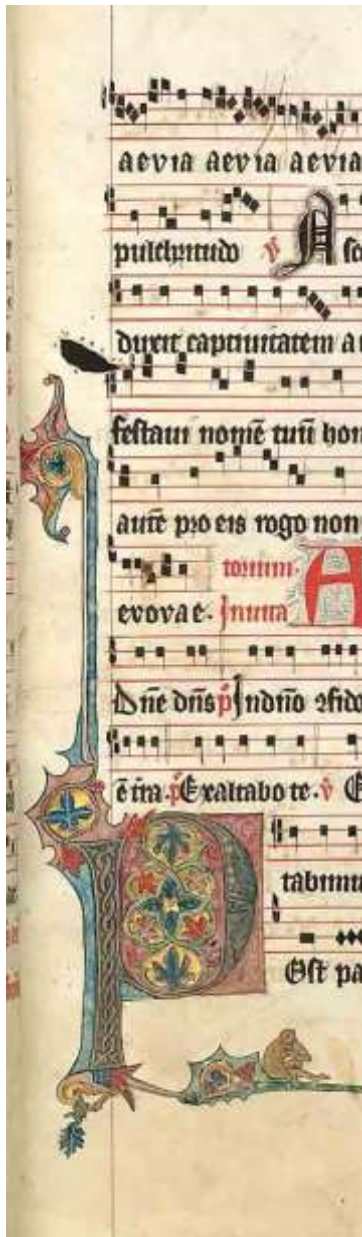 aevia aevia aevia
pulchritudo ℣ Asc
duxit captivitatem a
festaui nomē tuū hom
autē pro eis rogo non
torium. A
evovae. Inuita
Dn̄e dn̄s p̄ In dn̄o ꝯfido
ē t̄ra. p̄ Exaltabo te. ℣
tabimu
Ost pa